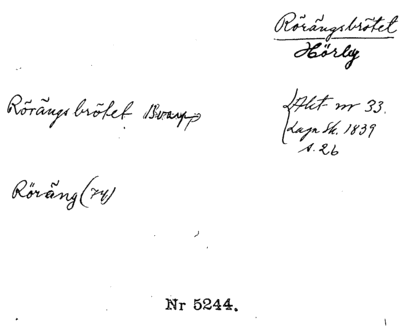 Rörängsbrötet
Hörby
Rörängsbrötet
Akt nr 33.
Laga Sk. 1839
s. 26
Röräng (74)
Nr 5244.